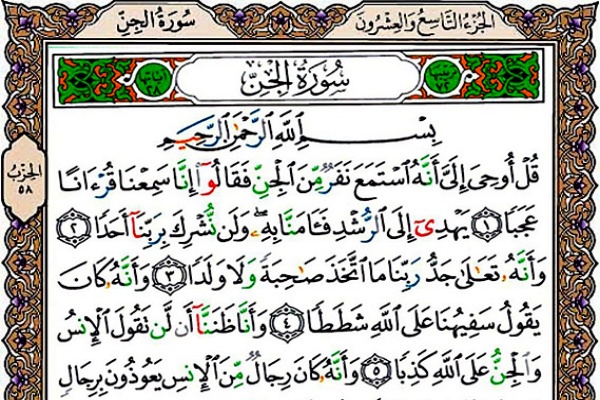 سُورَةُ الجِنّ
الجُزءُ التَّاسِعُ وَالعِشْرُونَ
آيَاتُهَا ٢٨
سُورَةُ الجِنِّ
تَرتِيبُهَا ٧٢
بِسْمِ ٱللَّهِ ٱلرَّحْمَٰنِ ٱلرَّحِيمِ
الحِزْبُ ٥٨
قُلْ أُوحِىَ إِلَىَّ أَنَّهُ ٱسْتَمَعَ نَفَرٌ مِّنَ ٱلْجِنِّ فَقَالُوٓا۟ إِنَّا سَمِعْنَا قُرْءَانًا
عَجَبًا ١ يَهْدِىٓ إِلَى ٱلرُّشْدِ فَـَٔامَنَّا بِهِۦ وَلَن نُّشْرِكَ بِرَبِّنَآ أَحَدًا ٢
وَأَنَّهُۥ تَعَٰلَىٰ جَدُّ رَبِّنَا مَا ٱتَّخَذَ صَٰحِبَةً وَلَا وَلَدًا ٣ وَأَنَّهُۥ كَانَ
يَقُولُ سَفِيهُنَا عَلَى ٱللَّهِ شَطَطًا ٤ وَأَنَّا ظَنَنَّآ أَن لَّن تَقُولَ ٱلْإِنسُ
وَٱلْجِنُّ عَلَى ٱللَّهِ كَذِبًا ٥ وَأَنَّهُۥ كَانَ رِجَالٌ مِّنَ ٱلْإِنسِ يَعُوذُونَ بِرِجَالٍ